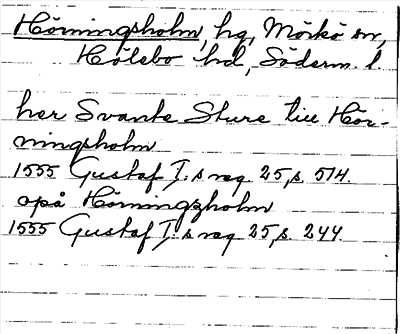 Hörningsholm, hg, Mörkö sn,
Hölebo hd, Söderm. l.
her Svante Sture till Hör-
ningsholm
1555 Gustaf I:s reg 25, s. 514.
opå Hörningzholm
1555 Gustaf I:s reg 25, s. 244.